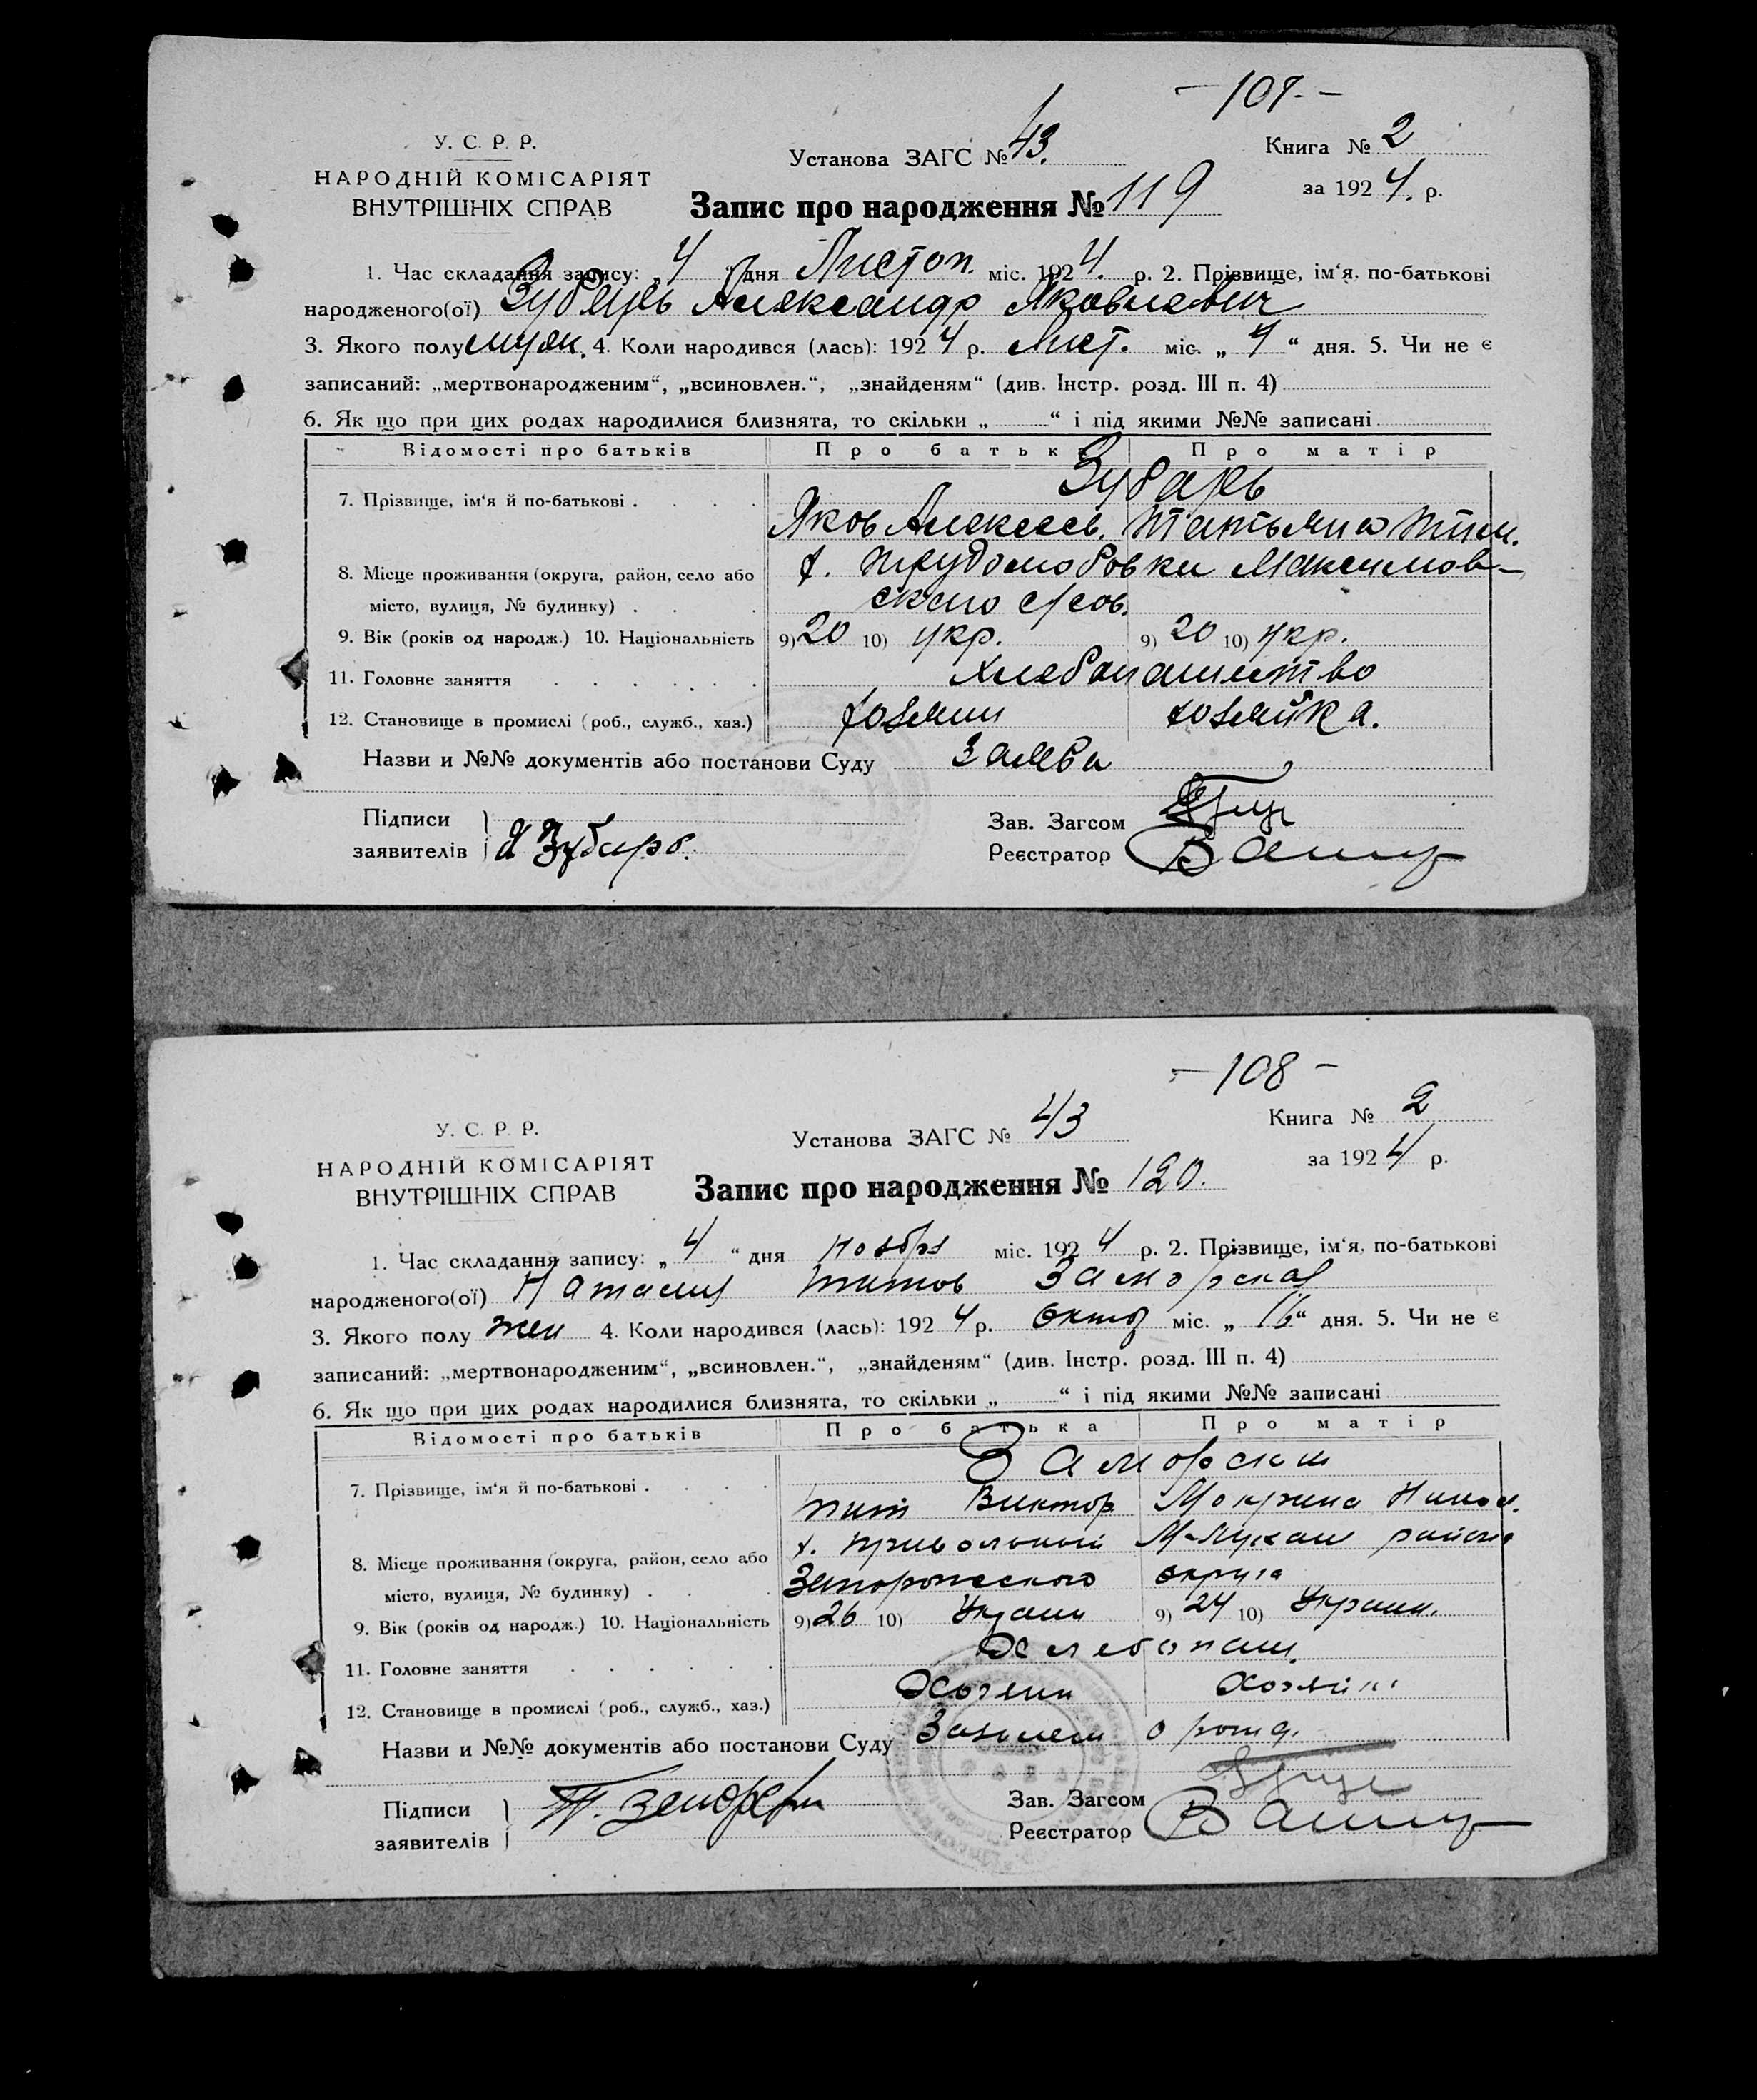 -107.-
У. С. Р. Р.
Установа ЗАГС № 43.
Книга № 2
НАРОДНІЙ КОМІСАРІЯТ
за 1924. р.
ВНУТРІШНІХ СПРАВ
Запис про народження № 119
1. Час складання запису: „4“ дня Листоп. міс. 1924. р. 2. Прізвище, ім‘я, по-батькові
народженого(ої) Зубарь Александр Яковлевич
3. Якого полу муж. 4. Коли народився (лась): 1924 р. Лист. міс. „4“ дня. 5. Чи не є
записаний: „мертвонародженим“, „всиновлен.“, „знайденям“ (див. Інстр. розд. III п. 4)
6. Як що при цих родах народилися близнята, то скільки „ “ і під якими №№ записані
Відомості про батьків Про батька Про матір
Зубарь
7. Прізвище, ім‘я й по-батькові . . . .
Яков Алексеев. Татьяна Тим.
8. Місце проживання (округа, район, село або х. Трудолюбовки Максимов-
місто, вулиця, № будинку) . . . ского с/сов.
9. Вік (років од народж.) 10. Національність 9) 20 10) укр. 9) 20 10) укр.
11. Головне заняття . . . . . . Хлебопашество
12. Становище в промислі (роб., служб., хаз.) хозяин хозяйка.
Назви и №№ документів або постанови Суду Заява
Підписи
Зав. Загсом
заявителів Я Зубарь.
Реєстратор
-108-
У. С. Р. Р.
Установа ЗАГС № 43
Книга № 2
НАРОДНІЙ КОМІСАРІЯТ
за 1924 р.
ВНУТРІШНІХ СПРАВ
Запис про народження № 120.
1. Час складання запису: „4“ дня ноября міс. 1924 р. 2. Прізвище, ім‘я, по-батькові
народженого(ої) Наталия Титов Заморская
3. Якого полу жен 4. Коли народився (лась): 1924 р. Октяб міс. „16“ дня. 5. Чи не є
записаний: „мертвонародженим“, „всиновлен.“, „знайденям“ (див. Інстр. розд. III п. 4)
6. Як що при цих родах народилися близнята, то скільки „ “ і під якими №№ записані
Відомості про батьків Про батька Про матір
Заморский
7. Прізвище, ім‘я й по-батькові . . . .
Тит Виктор Мокрина Никол.
х. Привольный района
8. Місце проживання (округа, район, село або
місто, вулиця, № будинку) . . Запорожского округа
9. Вік (років од народж.) 10. Національність 9) 26 10) Украин 9) 24 10) Украин.
11. Головне заняття . . . . . . Хлебопаш.
12. Становище в промислі (роб., служб., хаз.) Хозяин Хозяйк
Назви и №№ документів або постанови Суду о рожд.
Підписи
Зав. Загсом
заявителів
Реєстратор